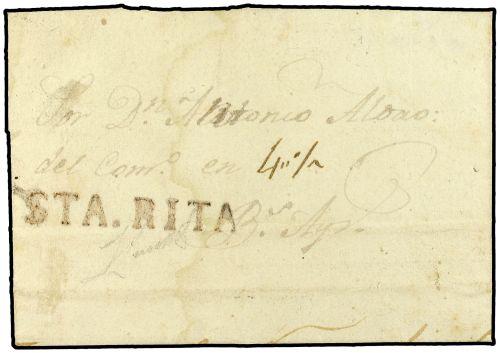 Sor Dn. Antonio Aldao:
del Come. en 4
STA. RITA
Bs. Ays.